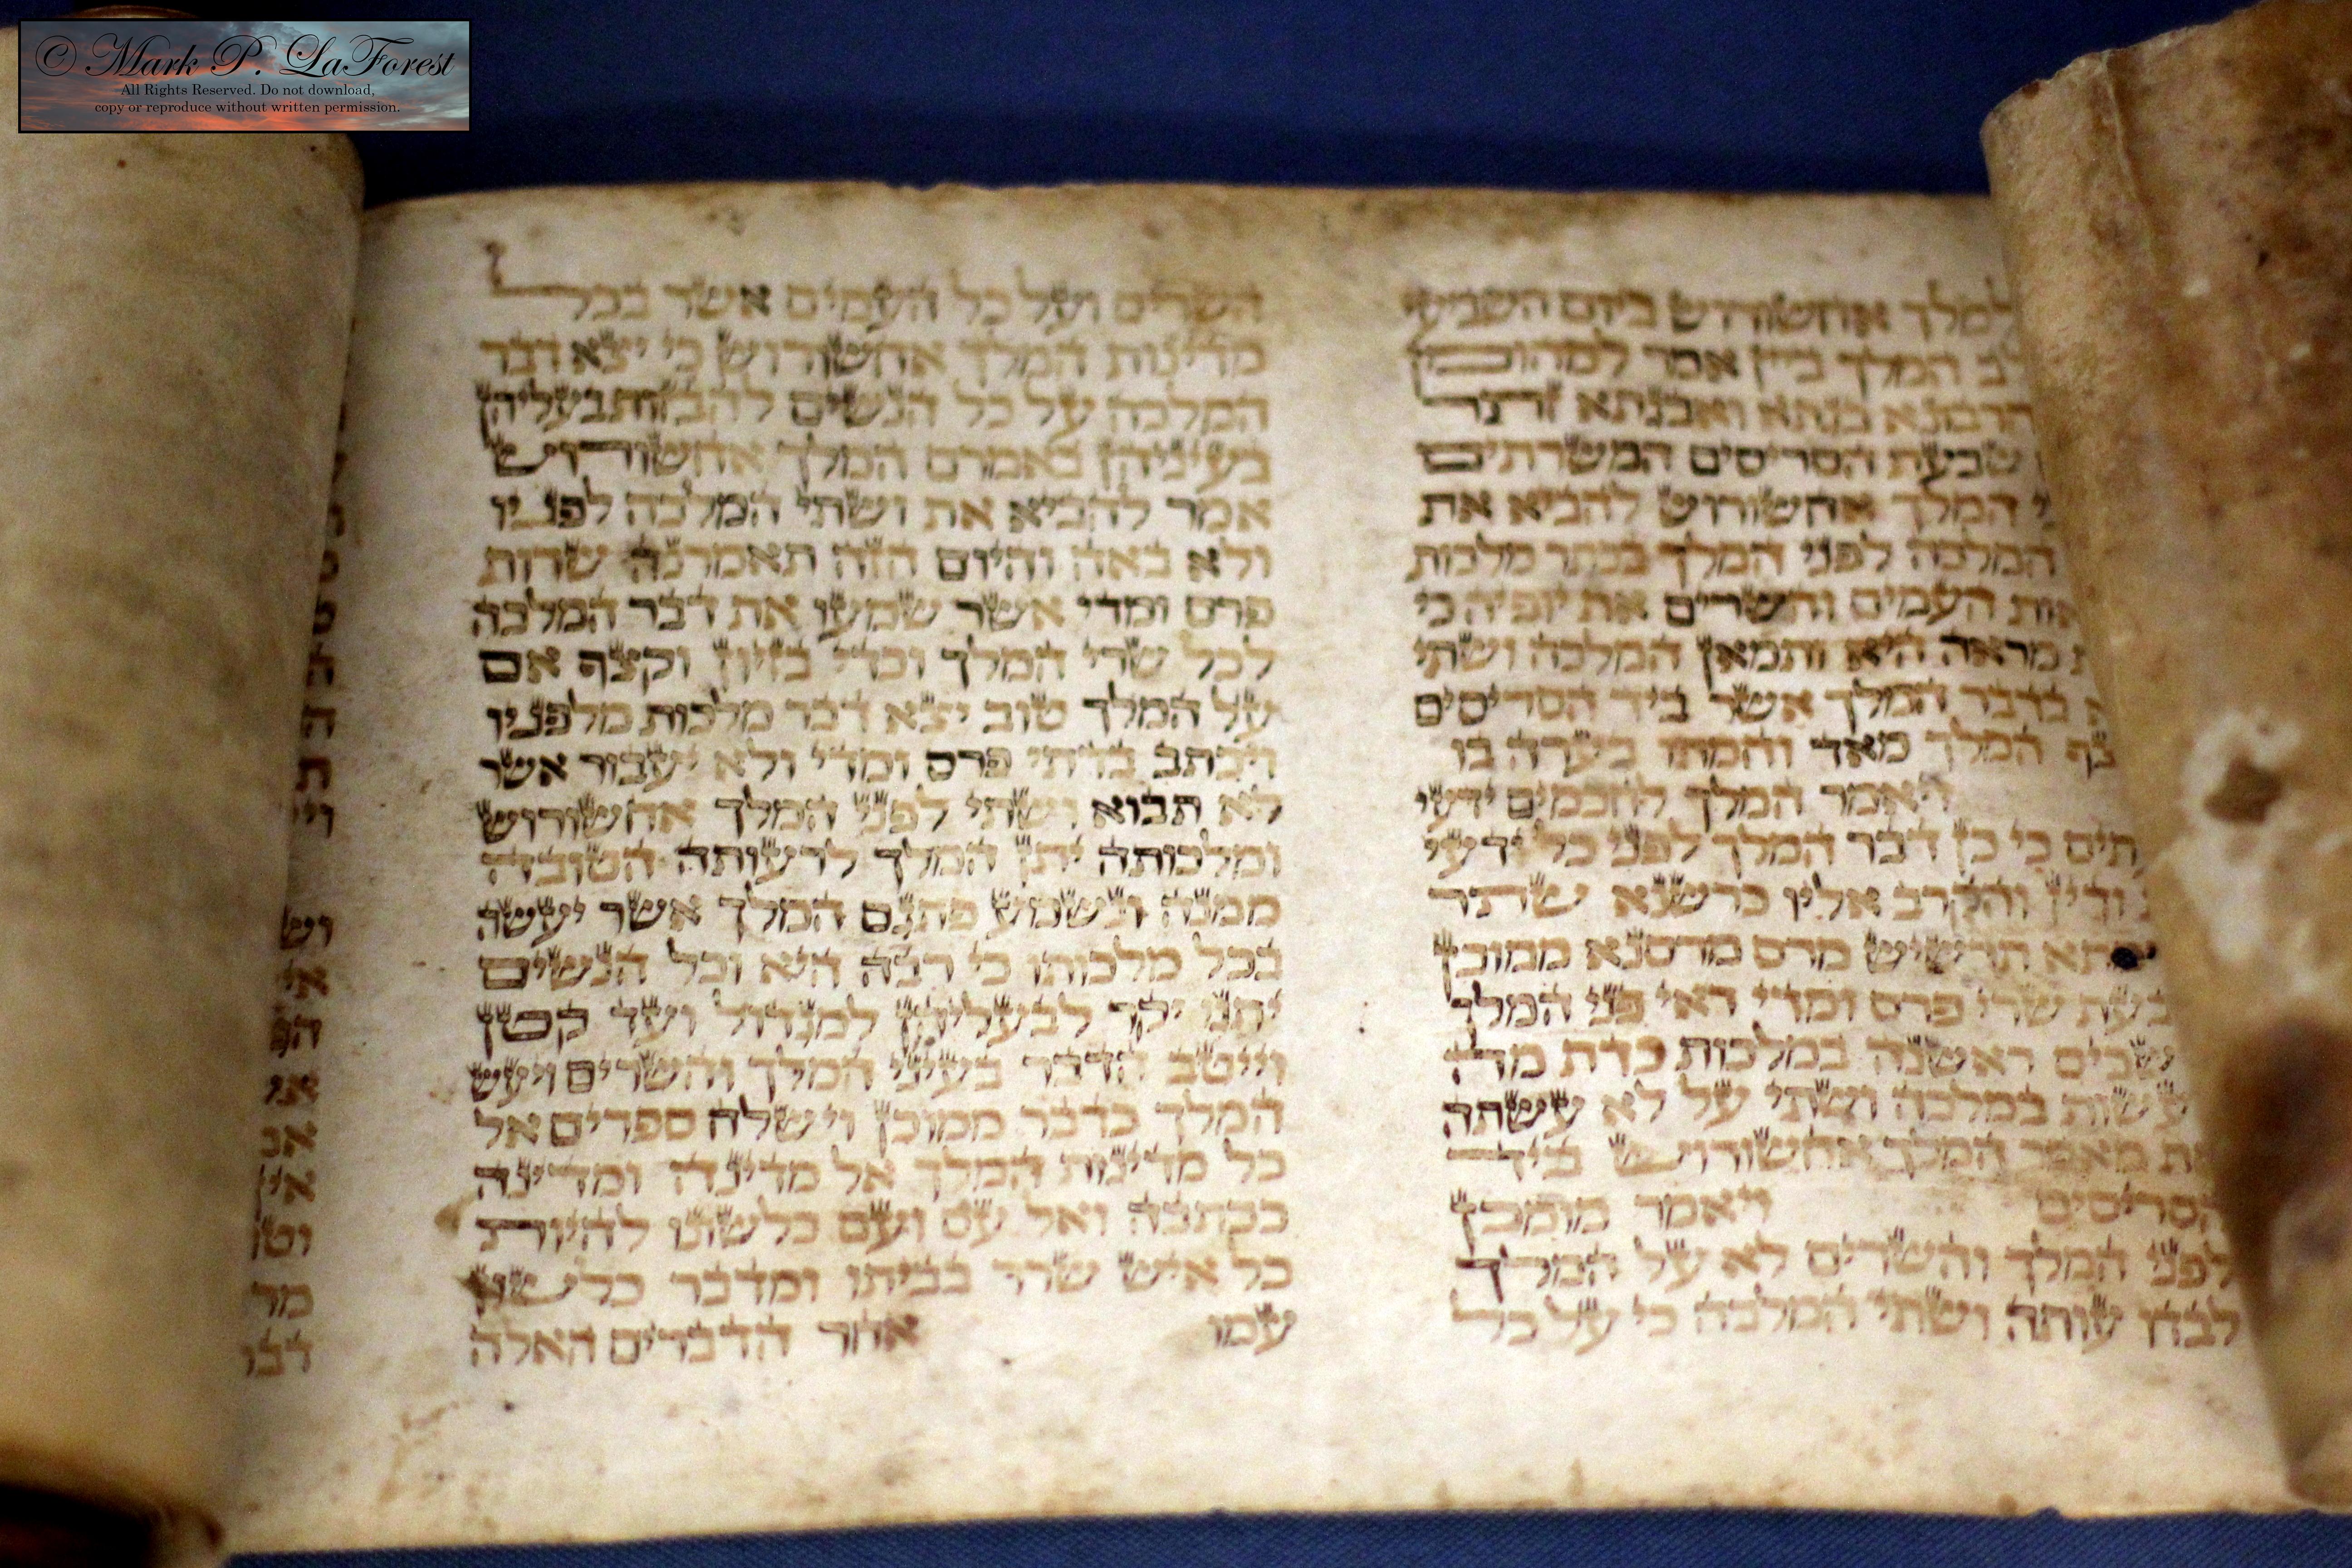 © Mark P. LaForest
All Rights Reserved. Do not download,
copy or reproduce without written permission.
למלך אחשורוש ביום השביעי
לב המלך ביין אמר למהומן
חרבונא בגתא ואבגתא זתר
שבעת הסריסים המשרתים
המלך אחשורוש להביא את
המלכה לפני המלך בכתר מלכות
העמים והשרים את יופיה כי
מראה היא ותמאן המלכה ושתי
בדבר המלך אשר ביד הסריסים
המלך מאד וחמתו בערה בו
ויאמר המלך לחכמים ידעי
כי כן דבר המלך לפני כל ידעי
ודין והקרב אליו כרשנא שתר
תרשיש מרס מרסנא ממוכן
שרי פרס ומדי ראי פני המלך
ראשנה במלכות כדת מה
לעשות במלכה ושתי על לא עשתה
את מאמר המלך אחשורוש ביד
הסריסים ויאמר מומכן
לפני המלך והשרים לא על המלך
לבדו עותה ושתי המלכה כי על כל
השרים ועל כל העמים אשר בכל
מדינות המלך אחשורוש כי יצא דבר
המלכה על כל הנשים להבזות בעליהן
בעיניהן באמרם המלך אחשורוש
אמר להביא את ושתי המלכה לפניו
ולא באה והיום הזה תאמרנה שרות
פרס ומדי אשר שמעו את דבר המלכה
לכל שרי המלך וכדי בזיון וקצף אם
על המלך טוב יצא דבר מלכות מלפניו
ויכתב בדתי פרס ומדי ולא יעבור אשר
לא תבוא ושתי לפני המלך אחשורוש
ומלכותה יתן המלך לרעותה הטובה
ממנה ונשמע פתגם המלך אשר יעשה
בכל מלכותו כי רבה היא וכל הנשים
יתנו יקר לבעליהן למגדול ועד קטן
וייטב הדבר בעיני המלך והשרים ויעש
המלך כדבר ממוכן וישלח ספרים אל
כל מדינות המלך אל מדינה ומדינה
ככתבה ואל עם ועם כלשונו להיות
כל איש שרר בביתו ומדבר כלשון
עמו אחר הדברים האלה